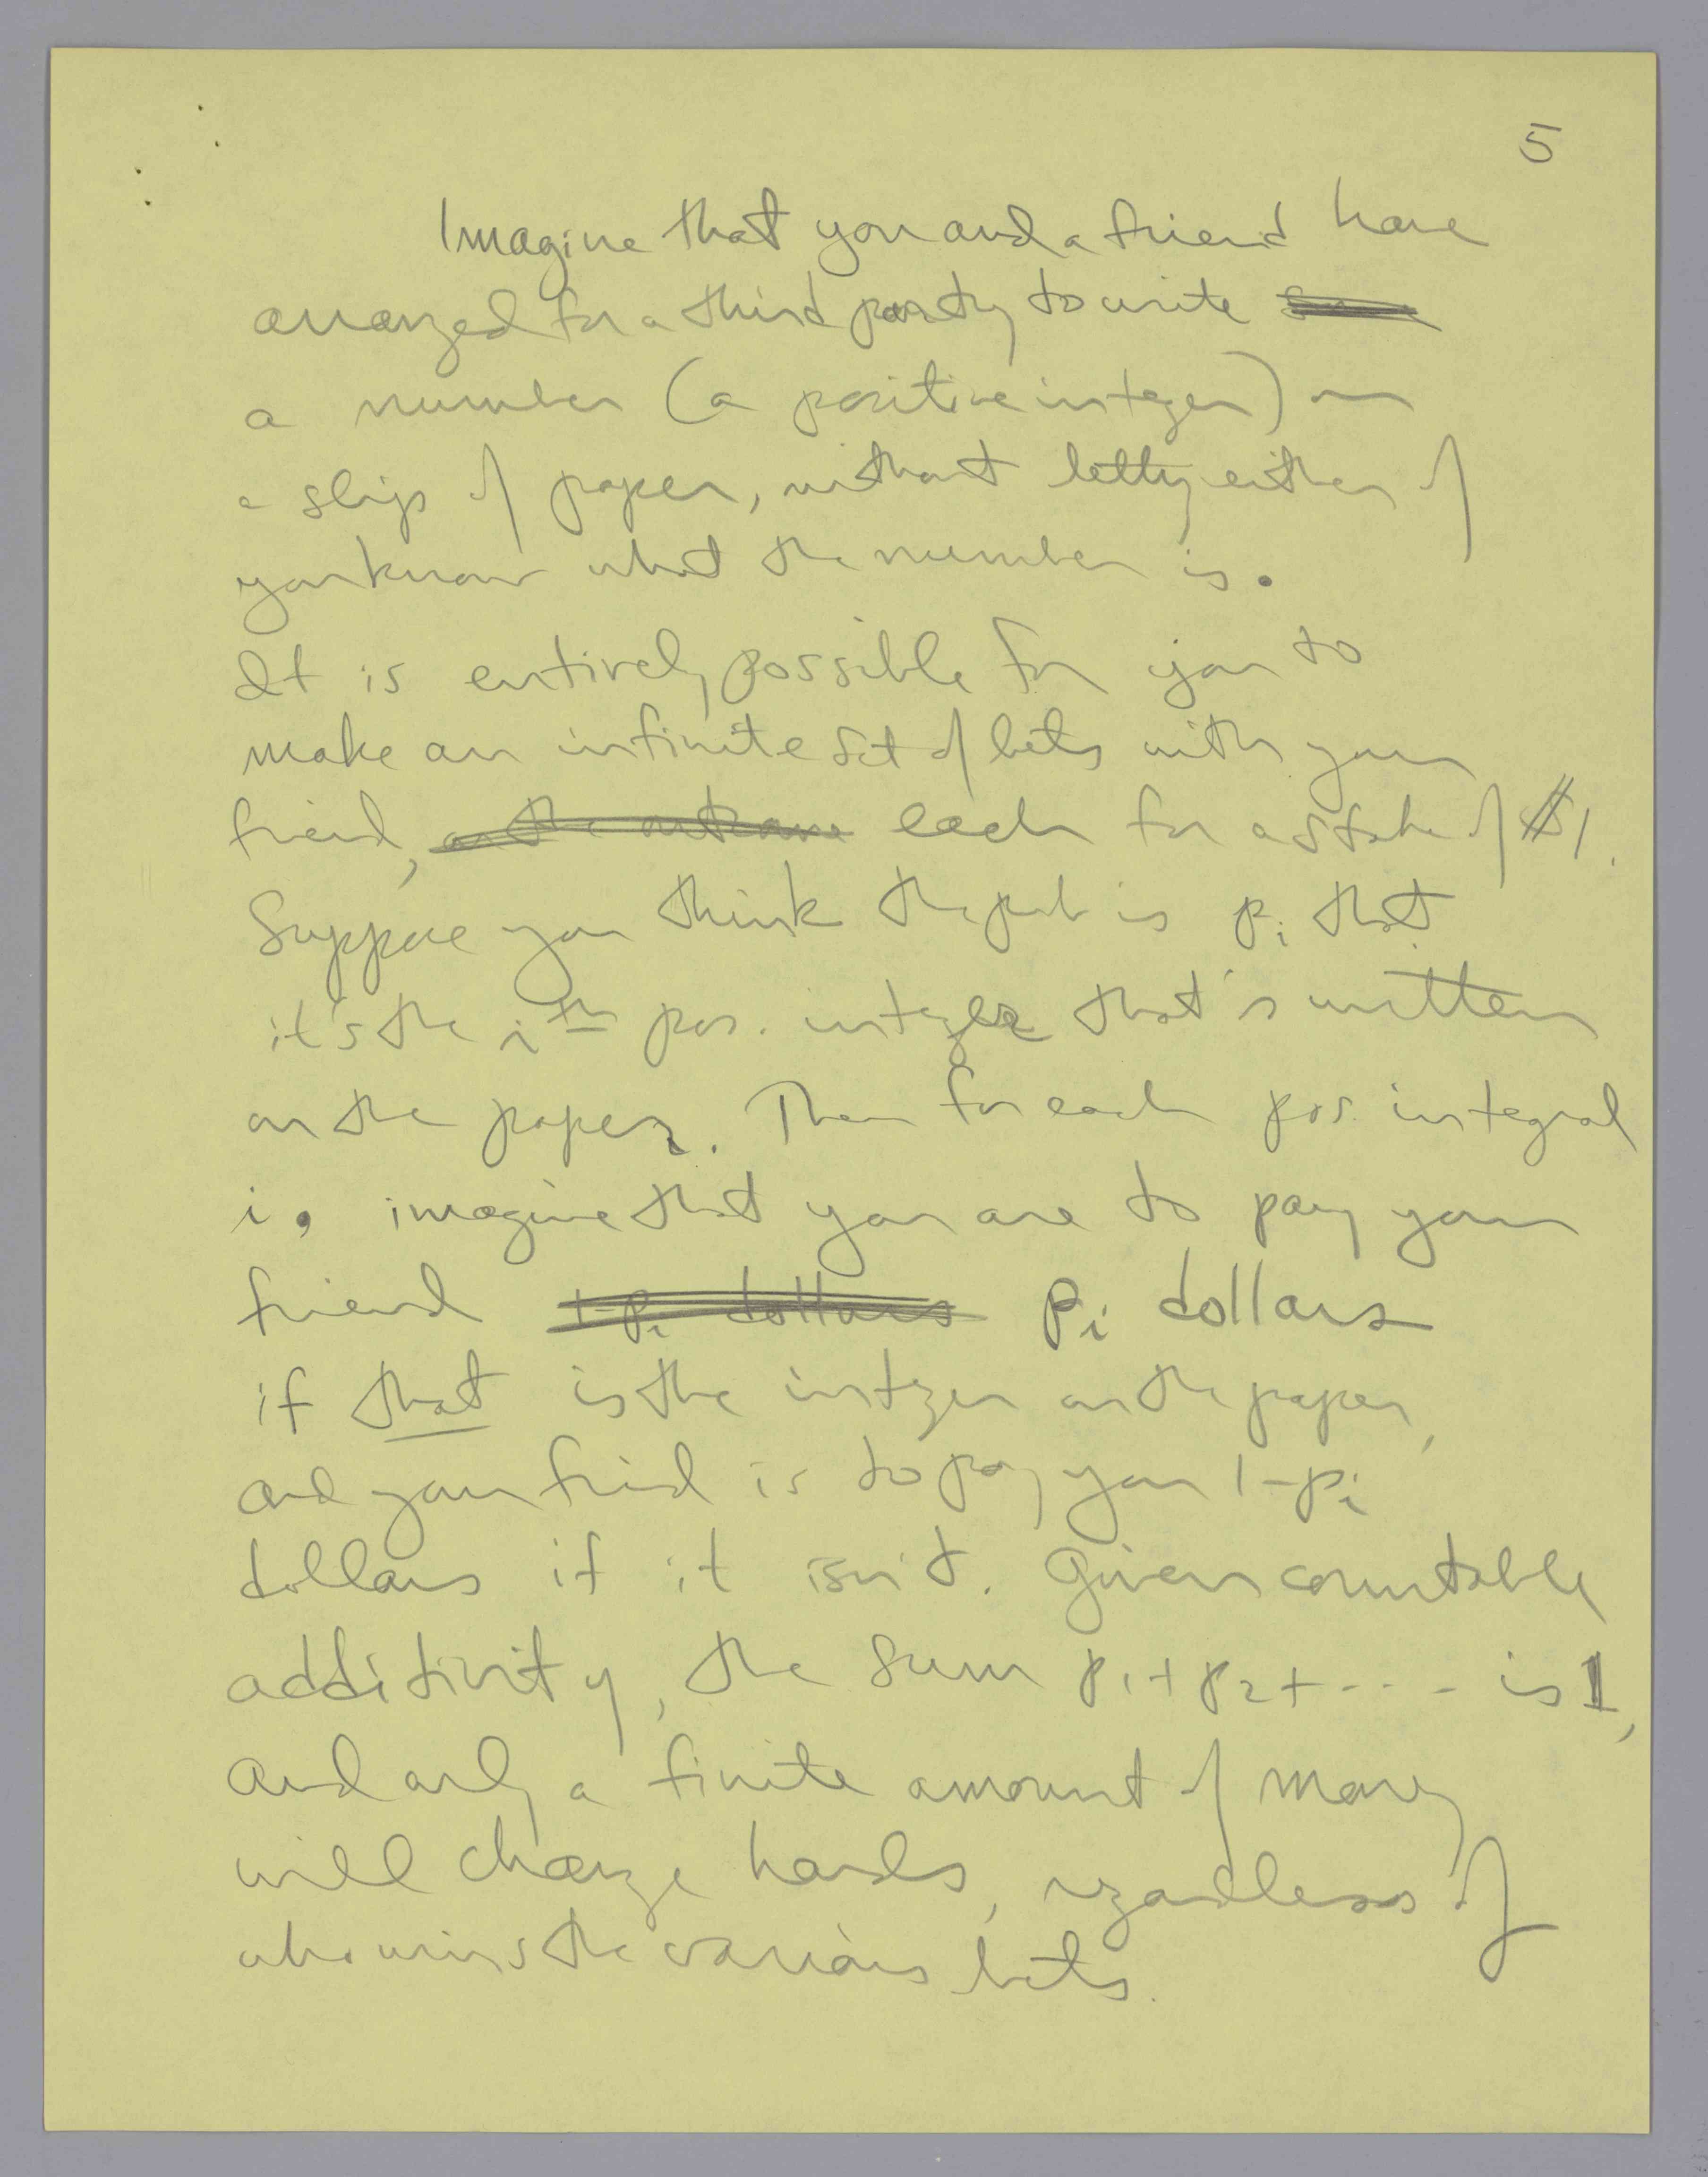 5
Imagine that you and a friend have
arranged for a third party to write
a number (a positive integer) on
a slip of paper, without letting either of
you know what the number is.
It is entirely possible for you to
make an infinite set of bets with your
friend, on the outcome each for a stake of $1.
Suppose you think the prob is pi that
it's the ith pos. integer that's written
on the paper. Then for each pos. integral
i, imagine that you are to pay your
friend 1-pi dollars pi dollars
if that is the integer on the paper,
and your friend is to pay you 1-pi
dollars if it isn't. Given countable
additivity, the sum p1+p2+.... is 1,
and only a finite amount of money
will change hands, regardless of
who wins the various bets.